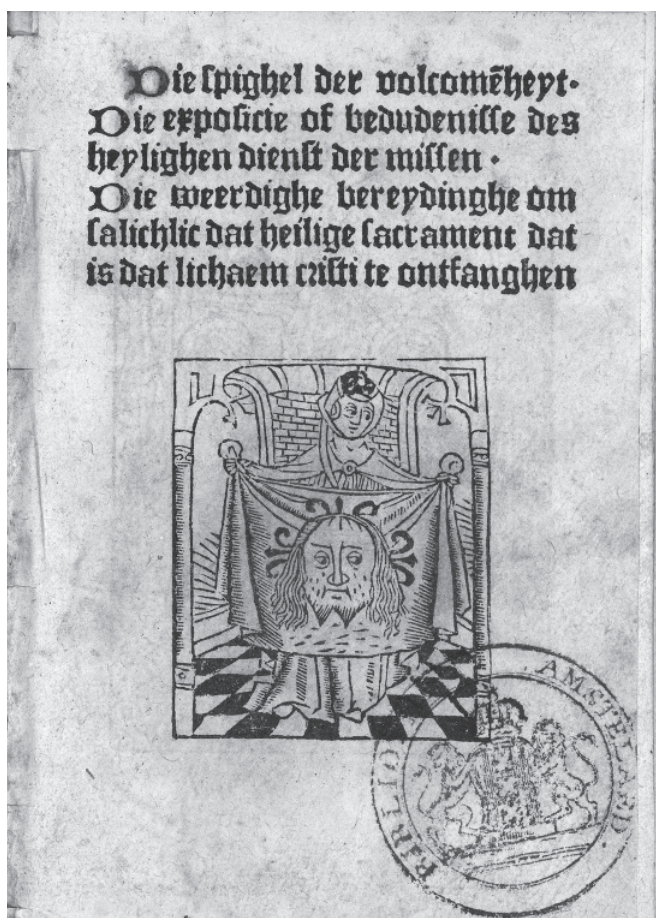 Die spighel der volcomēheyt·
Die exposicie of bedudenisse des
heylighen dienst der missen ·
Die weerdighe bereydinghe om
salichlic dat heilige sacrament dat
is dat lichaem cristi te ontfanghen
AMSTELAED.